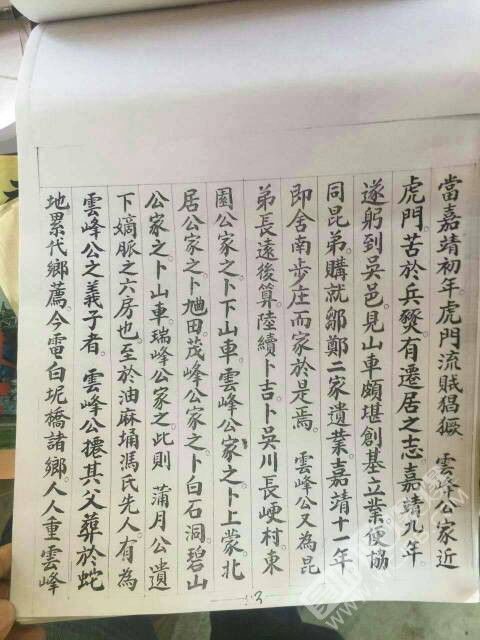 當嘉靖初年虎門流賊猖獗 雲峰公家近
虎門。苦於兵燹有遷居之志嘉靖九年。
遂躬到吳邑。見山車頗堪創基立業便協
同昆弟。購就鄒鄭二家遺業。嘉靖十一年
即舍南步庄而家於是焉。 雲峰公又為昆
弟長遠後算。陸續卜吉。卜吳川長岐村東
園公家之。卜下山車。雲峰公家之。卜上蒙。北
居公家之。卜田。茂峰公家之。卜白石洞。碧山
公家之。卜山車。瑞峰公家之。此則 蒲月公遺
下嫡脈之六房也。至於油麻埇馮氏先人。有為
雲峰公之義子者。 雲峰公攇其父葬於蛇
地累代鄉薦。今電白坭橋諸鄉。人人重雲峰
13